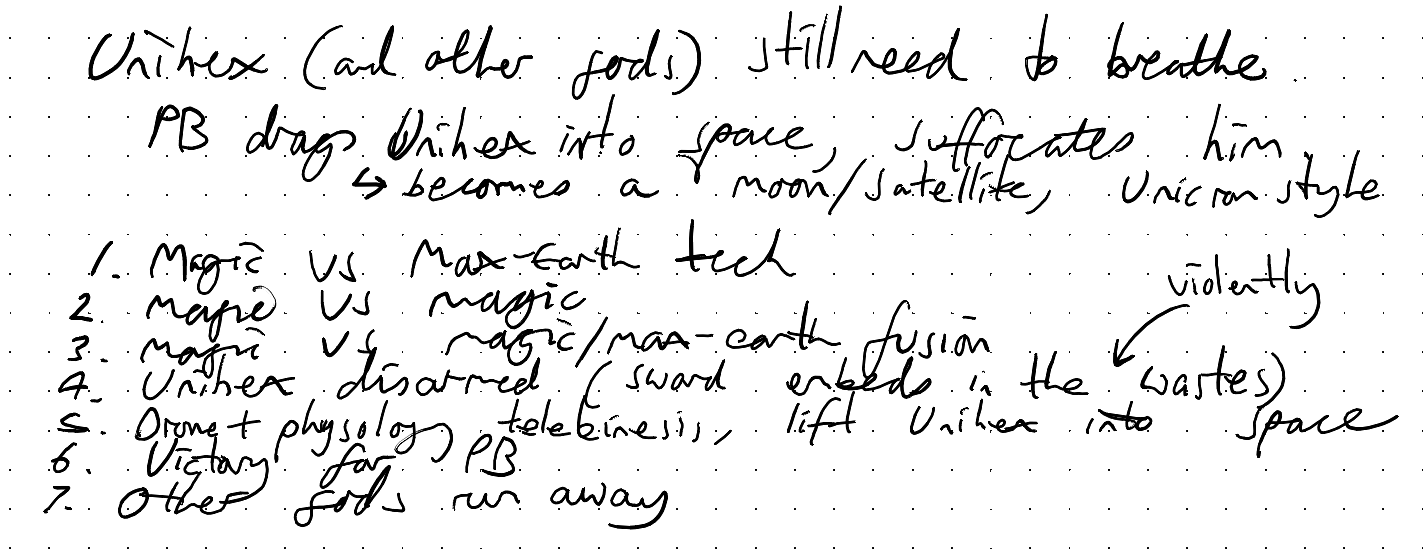 Unihex (and other gods) still need to breathe
PB drags Unihex into space, suffocates him
↳ becomes a moon/satellite, Unicron style
1. Magic vs Max-Earth tech
violently
2. magic vs magic
3. magic vs magic/max-earth fusion
4. Unihex disarmed (sword embeds in the wastes)
5. Drone + physology, telekinesis, lift Unihex into space
6. Victory for PB
7. Other gods run away